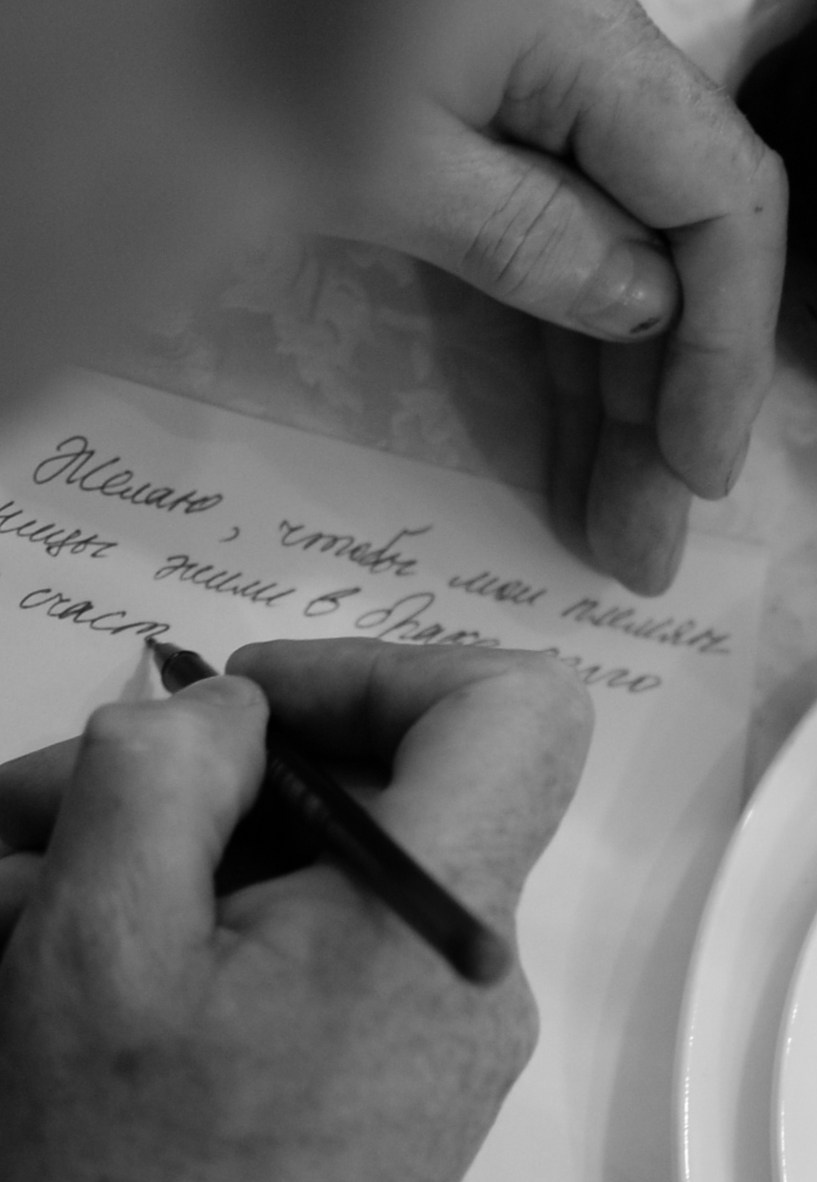 Желаю, чтобы мои племян
ницы жили в браке долго
счаст